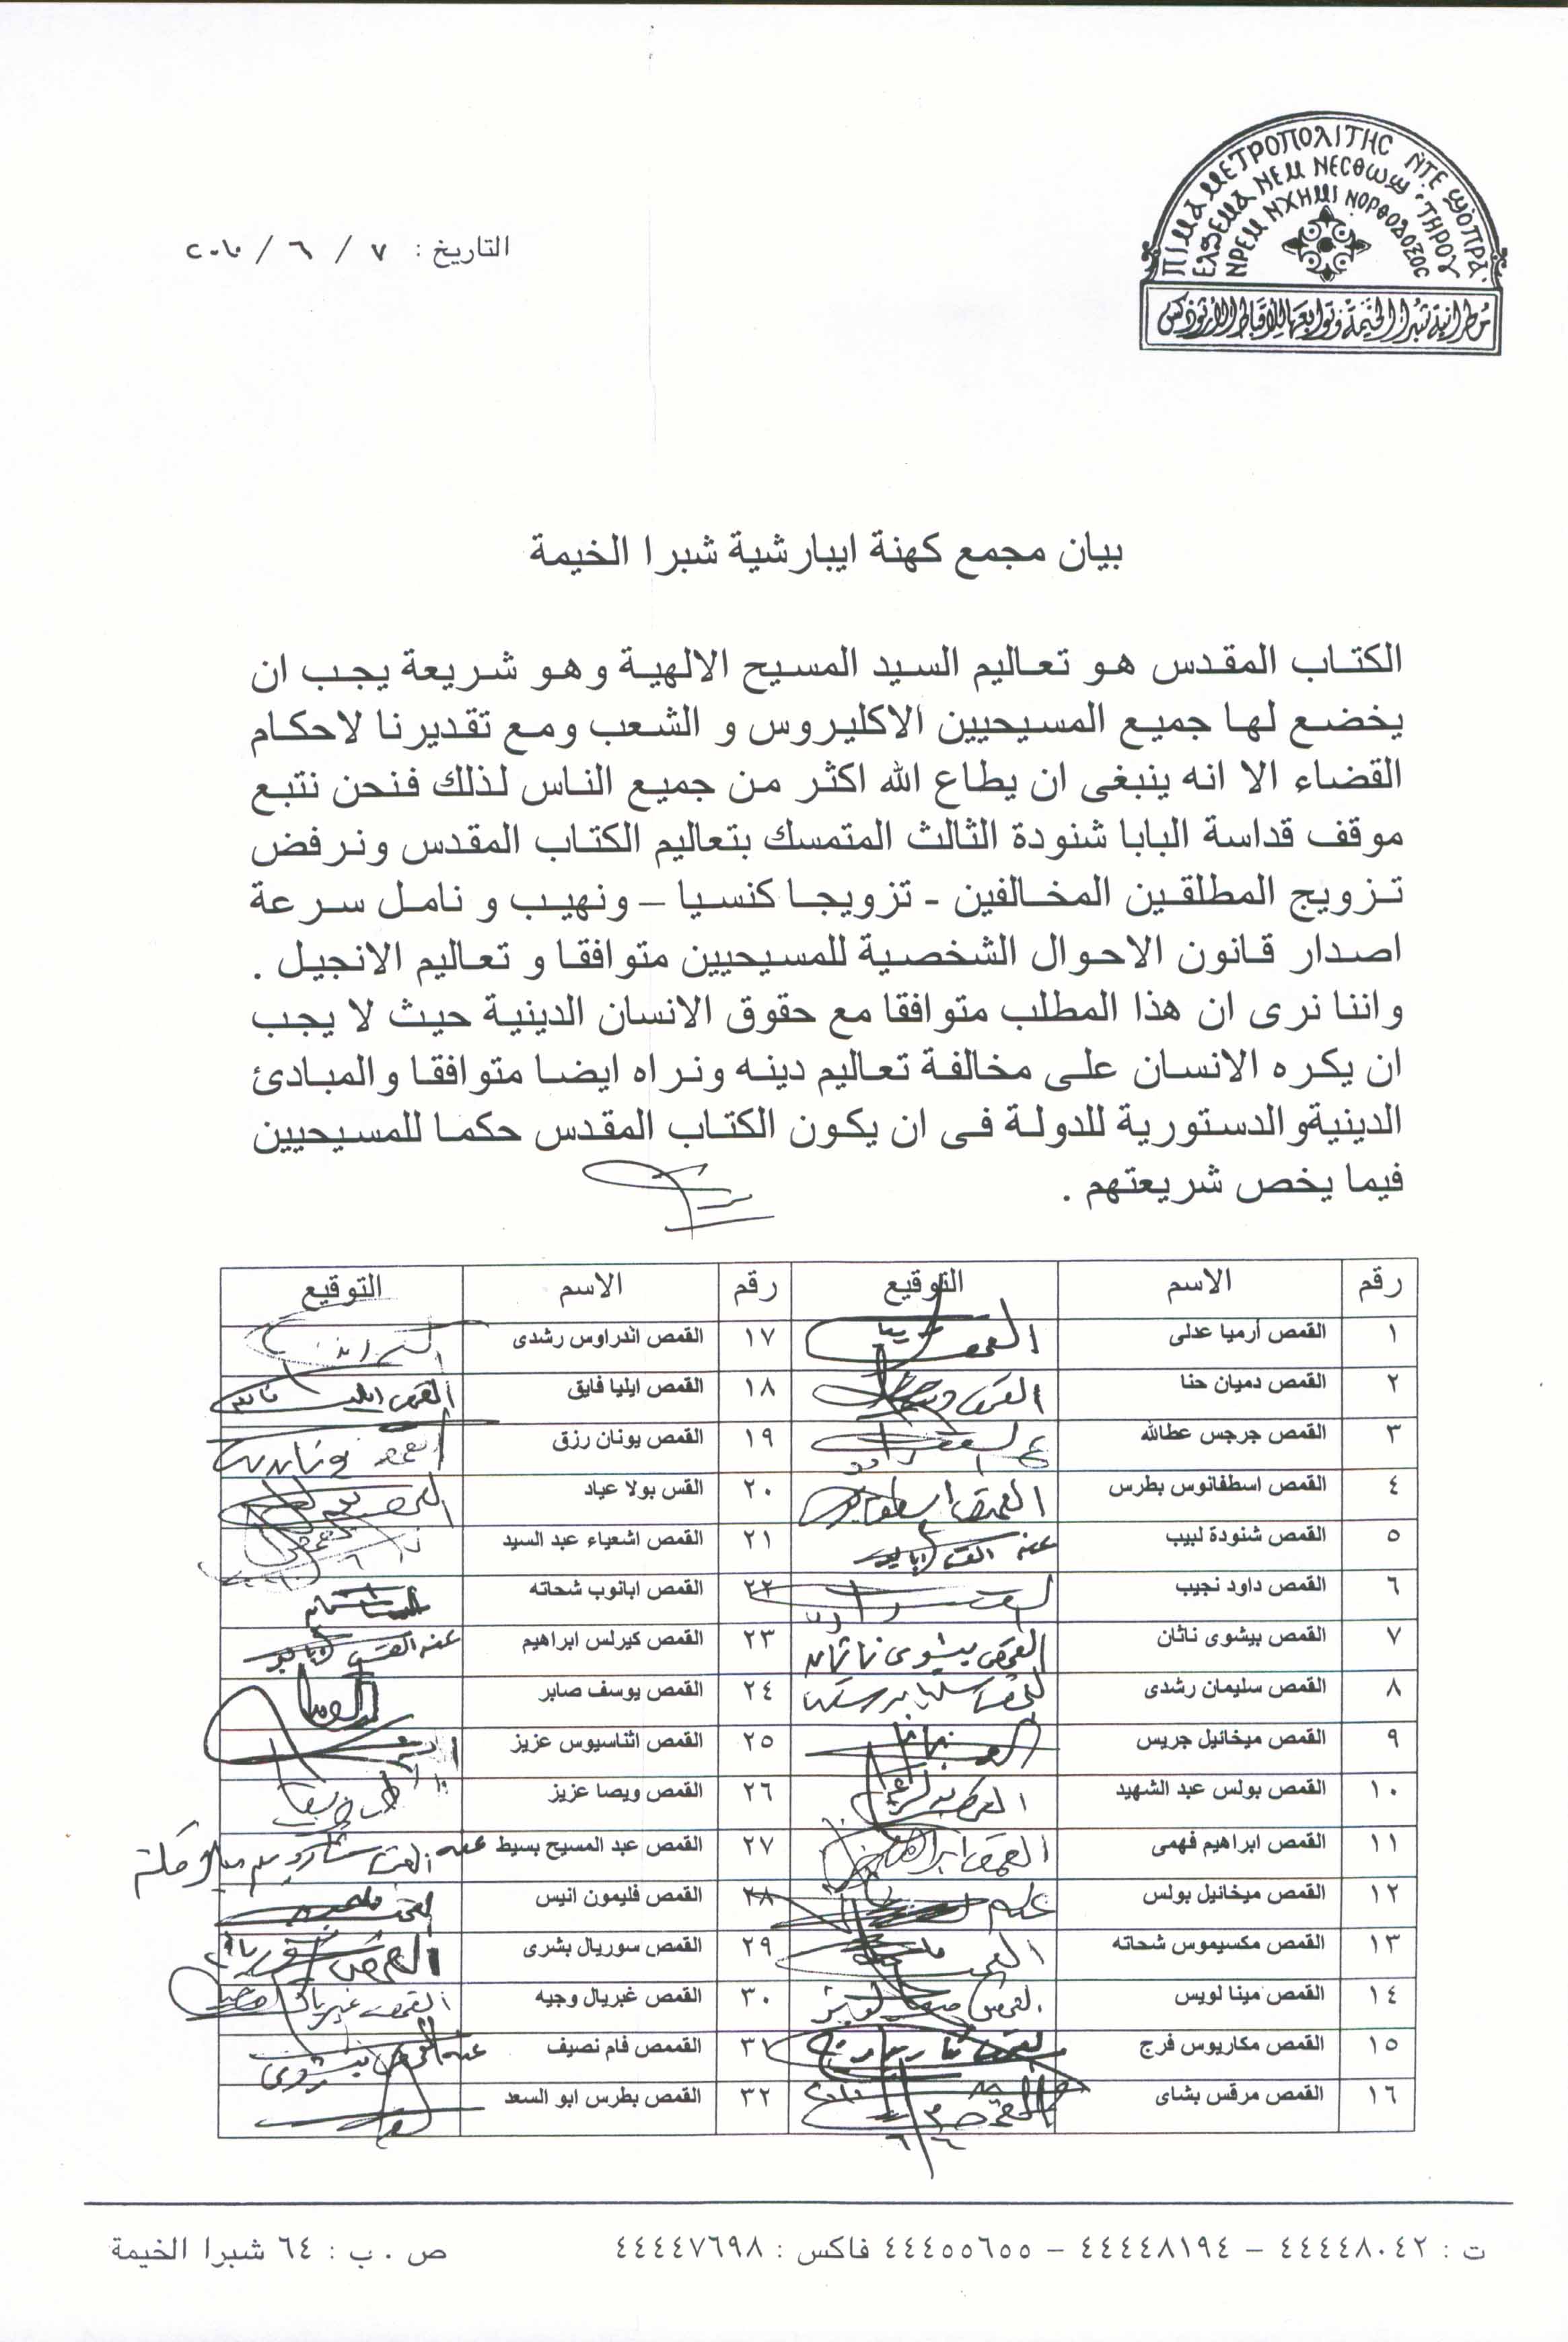 ⲠⲒⲘⲀ ⲘⲈⲦⲢⲞⲠⲞⲖⲒⲦⲎⲤ ⲚⲦⲈ ϢⲞⲠⲢⲀ
مطرانية شبرا الخيمة وتوابعها للأقباط الأرثوذكس
التاريخ : ٧ / ٦ / ٢٠١٠
بيان مجمع كهنة ايبارشية شبرا الخيمة
الكتاب المقدس هو تعاليم السيد المسيح الالهية وهو شريعة يجب ان
يخضع لها جميع المسيحيين الاكليروس و الشعب ومع تقديرنا لاحكام
القضاء الا انه ينبغى ان يطاع الله اكثر من جميع الناس لذلك فنحن نتبع
موقف قداسة البابا شنودة الثالث المتمسك بتعاليم الكتاب المقدس ونرفض
تزويج المطلقين المخالفين - تزويجا كنسيا – ونهيب و نامل سرعة
اصدار قانون الاحوال الشخصية للمسيحيين متوافقا و تعاليم الانجيل .
واننا نرى ان هذا المطلب متوافقا مع حقوق الانسان الدينية حيث لا يجب
ان يكره الانسان على مخالفة تعاليم دينه ونراه ايضا متوافقا والمبادئ
الدينيةوالدستورية للدولة فى ان يكون الكتاب المقدس حكما للمسيحيين
فيما يخص شريعتهم .
رقم الاسم التوقيع رقم الاسم التوقيع
١ القمص أرميا عدلى ١٧ القمص اندراوس رشدى
٢ القمص دميان حنا ١٨ القمص ايليا فايق
٣ القمص جرجس عطالله ١٩ القمص يونان رزق
٤ القمص اسطفانوس بطرس ٢٠ القس بولا عياد
٥ القمص شنودة لبيب ٢١ القمص اشعياء عبد السيد
٦ القمص داود نجيب ٢٢ القمص ابانوب شحاته
٧ القمص بيشوى ناثان القمص بيشوى ناثان ٢٣ القمص كيرلس ابراهيم
٨ القمص سليمان رشدى ٢٤ القمص يوسف صابر
٩ القمص ميخائيل جريس ٢٥ القمص اثناسيوس عزيز
١٠ القمص بولس عبد الشهيد ٢٦ القمص ويصا عزيز
١١ القمص ابراهيم فهمى ٢٧ القمص عبد المسيح بسيط
١٢ القمص ميخائيل بولس ٢٨ القمص فليمون انيس
١٣ القمص مكسيموس شحاته ٢٩ القمص سوريال بشرى
١٤ القمص مينا لويس ٣٠ القمص غبريال وجيه
١٥ القمص مكاريوس فرج ٣١ القممص فام نصيف
١٦ القمص مرقس بشاى ٣٢ القمص بطرس ابو السعد
ت : ٤٤٤٤٨٠٤٢ – ٤٤٤٤٨١٩٤ – ٤٤٤٥٥٦٥٥ فاكس : ٤٤٤٤٧٦٩٨ ص . ب : ٦٤ شبرا الخيمة